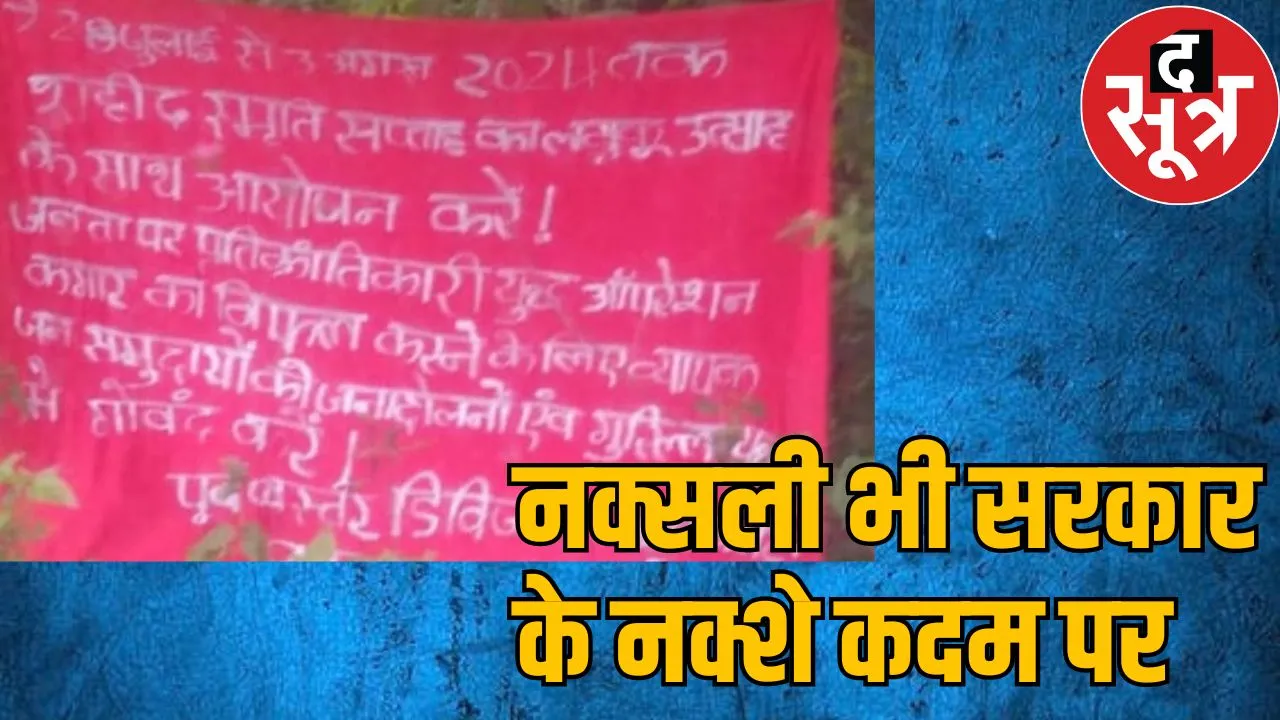 28 जुलाई से 3 अगस्त 2024 तक
शहीद स्मृति सप्ताह का उत्साह
के साथ आयोजन करें!
जनता पर प्रतिक्रांतिकारी युद्ध ऑपरेशन
कगार का विफल करने के लिए व्यापक
जन समुदायों की जनांदोलनों एंव
में गोलबंद करें!
पूर्व बस्तर
द
सूत्र
नक्सली भी सरकार
के नक्शे कदम पर